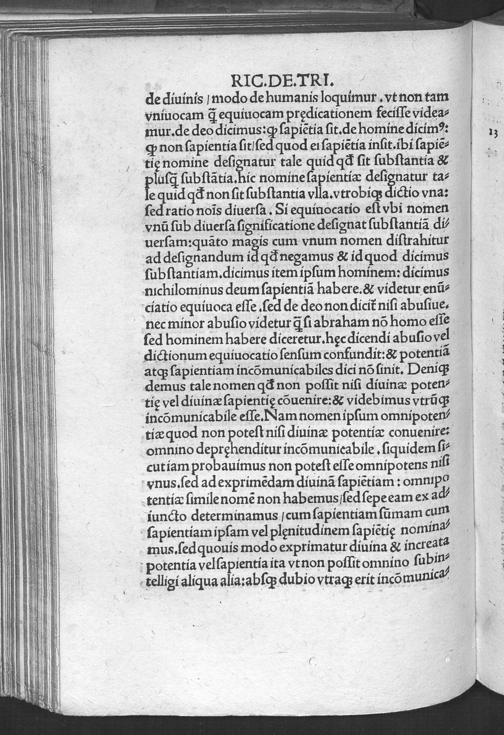 RIC.DE.TRI.
de diuinis / modo de humanis loquimur . vt non tam
vniuocam q̃ equiuocam prędicationem fecisse videa⸗
mur. de deo dicimus: ꝙ sapiẽtia sit. de homine dicimꝰ:
ꝙ non sapientia sit / sed quod ei sapiẽtia insit. ibi sapiẽ⸗
tię nomine designatur tale quid qđ sit substantia &
plusq̃ substãtia. hic nomine sapientiæ designatur ta⸗
le quid qđ non sit substantia vlla. vtrobiqꝫ dictio vna:
sed ratio noĩs diuersa . Si equiuocatio est vbi nomen
vnũ sub diuersa significatione designat substantiã di⸗
uersam: quãto magis cum vnum nomen distrahitur
ad designandum id qđ negamus & id quod dicimus
substantiam. dicimus item ipsum hominem: dicimus
nichilominus deum sapientiã habere. & videtur enũ⸗
ciatio equiuoca esse . sed de deo non dicit̃ nisi abusiue.
nec minor abusio videtur q̃ si abraham nõ homo esse
sed hominem habere diceretur. hęc dicendi abusio vel
dictionum equiuocatio sensum confundit: & potentiã
atqꝫ sapientiam incõmunicabiles dici nõ sinit. Deniqꝫ
demus tale nomen qđ non possit nisi diuinæ poten⸗
tię vel diuinæ sapientię cõuenire: & videbimus vtrũqꝫ
incõmunicabile esse. Nam nomen ipsum omnipoten⸗
tiæ quod non potest nisi diuinæ potentiæ conuenire:
omnino depręhenditur incõmunicabile . siquidem si⸗
cut iam probauimus non potest esse omnipotens nisi
vnus. sed ad exprimẽdam diuinã sapiẽtiam : omnipo
tentiæ simile nomẽ non habemus / sed sepe eam ex ad⸗
iuncto determinamus / cum sapientiam sũmam cum
sapientiam ipsam vel plęnitudinem sapiẽtię nomina⸗
mus. sed quouis modo exprimatur diuina & increata
potentia vel sapientia ita vt non possit omnino subin⸗
telligi aliqua alia: absqꝫ dubio vtraqꝫ erit incõmunica⸗
13